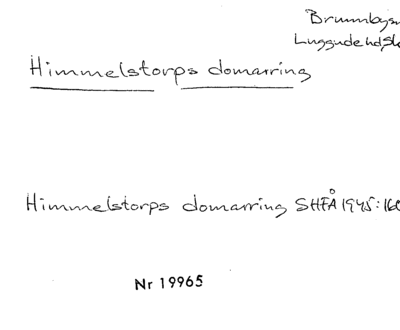 Brunnbysn
Luggude hd, Sk
Himmelstorps domarring
Himmelstorps domarring SHFÅ 1945:168
Nr 19965